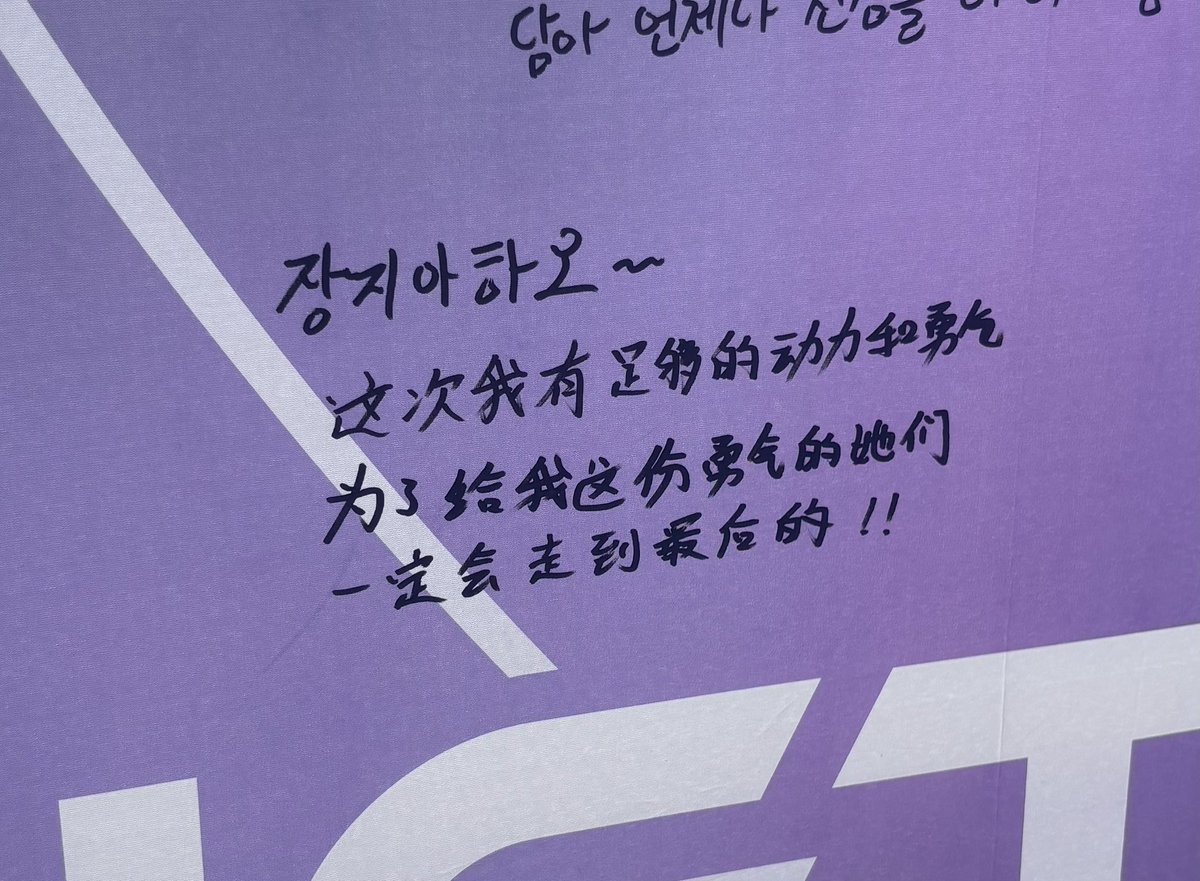 담아 언제나 진심을
장지아하오~
这次我有足够的动力和勇气
为了给我这份勇气的她们
一定会走到最后的!!